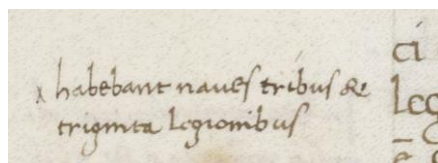 habebant naues tribus de
triginta legionibus
ci
leg